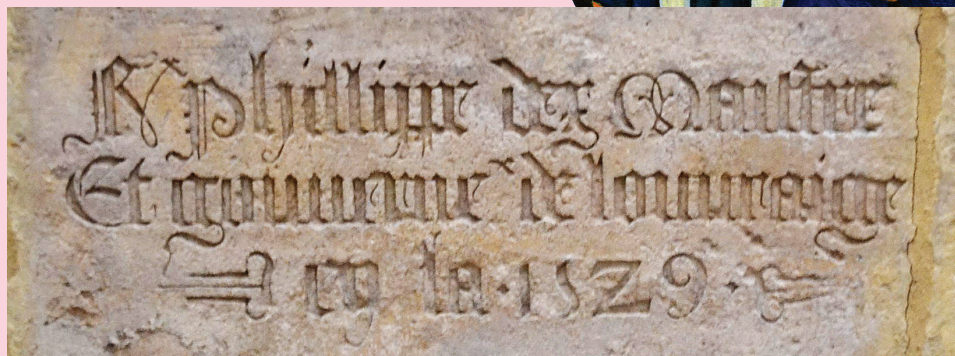 phillippe dex Maistre
Et gouuerne' de louuraige
en la · 1529 ·